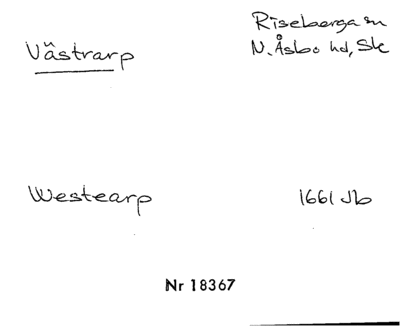 Västrarp
Riseberga sn
N. Åsbo hd, Sk
Westearp
1661 Jb
Nr 18367